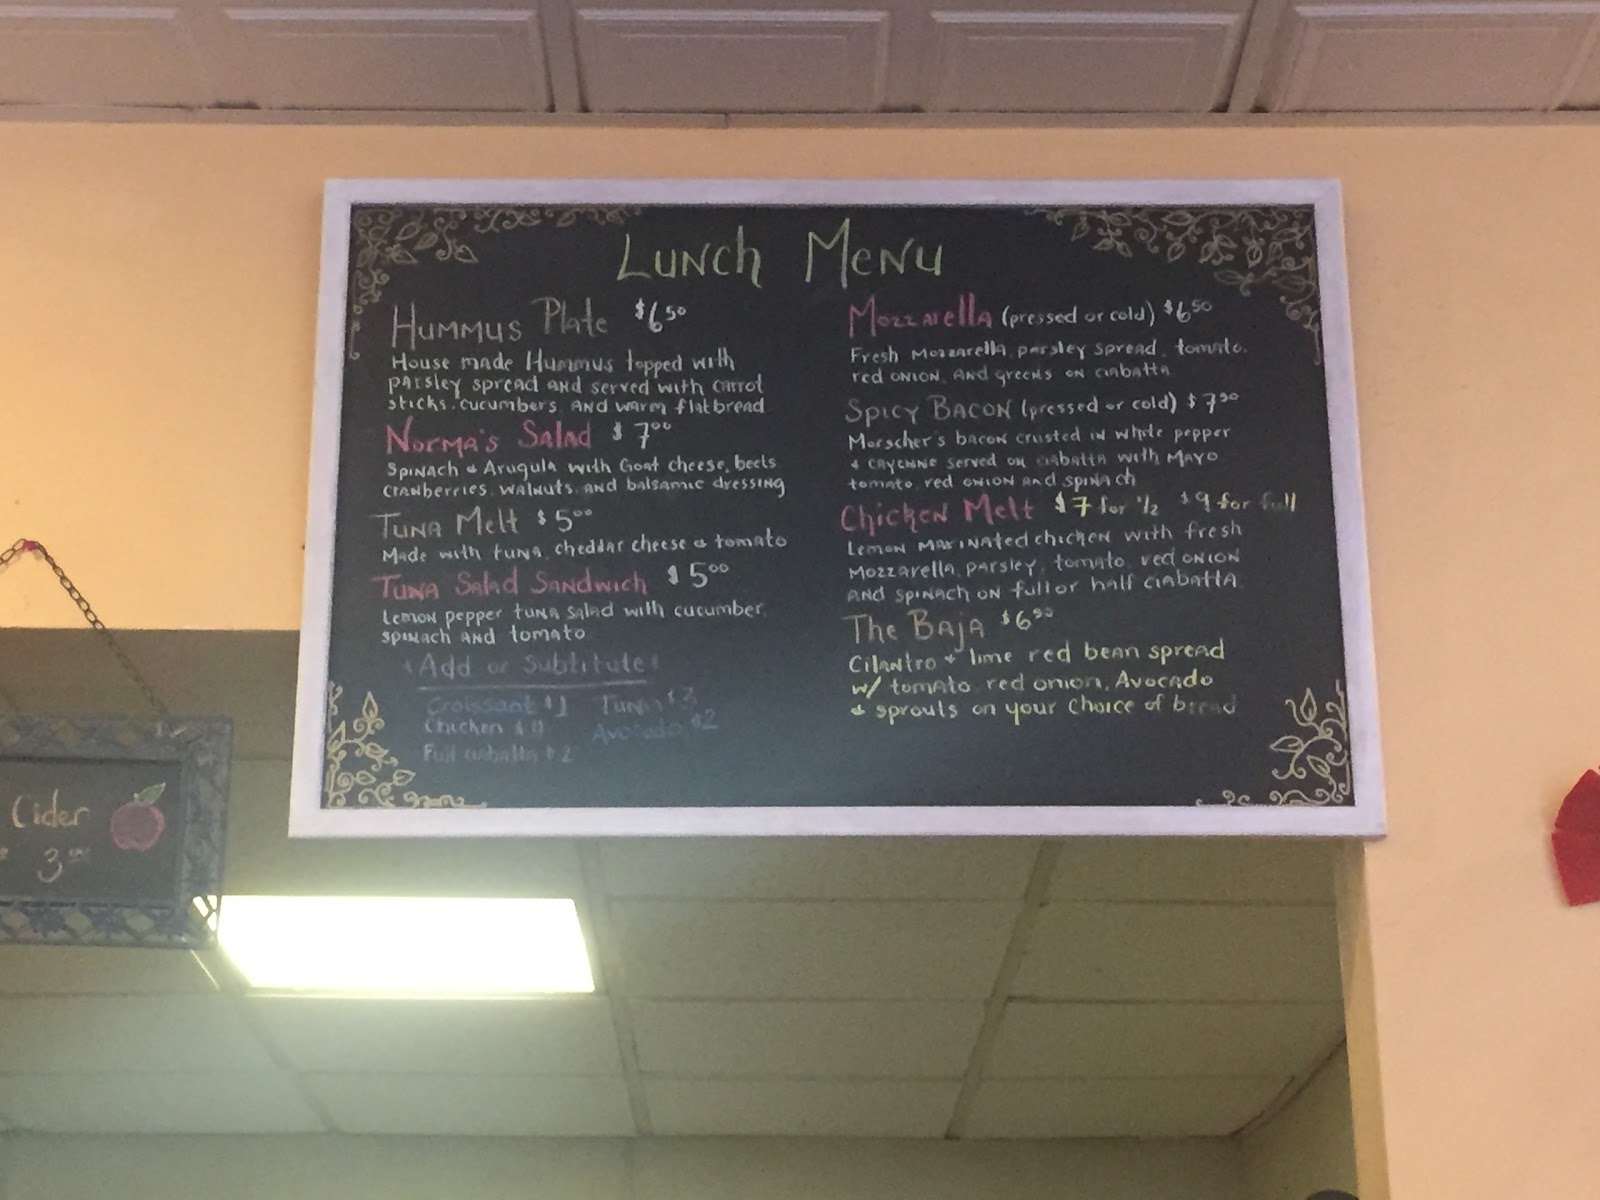 Lunch Menu
Hummus Plate $6.50
House made Hummus topped with
parsley spread and served with carrot
sticks, cucumbers, and warm flatbread
Norma's Salad $7.00
Spinach & Arugula with Goat cheese, beets
cranberries, walnuts, and balsamic dressing
Tuna Melt $5.00
Made with tuna, cheddar cheese & tomato
Tuna Salad Sandwich $5.00
Lemon pepper tuna salad with cucumber,
spinach and tomato
Add or Subtitute
Croissant $1 Tuna $3
Chicken Avocado $2
Full ciabatta $2
Mozzarella (pressed or cold) $6.50
Fresh Mozzarella, parsley spread, tomato,
red onion, and greens on ciabatta
Spicy Bacon (pressed or cold)
Morscher's bacon crusted in white pepper
& cayenne served on ciabatta with Mayo
tomato, red onion and spinach
Chicken Melt $7 for 1/2 $9 for full
Lemon marinated chicken with fresh
Mozzarella, parsley, tomato, red onion
and spinach on full or half ciabatta
The Baja
Cilantro & lime red bean spread
w/ tomato, red onion, Avocado
& sprouts on your choice of bread
Cider